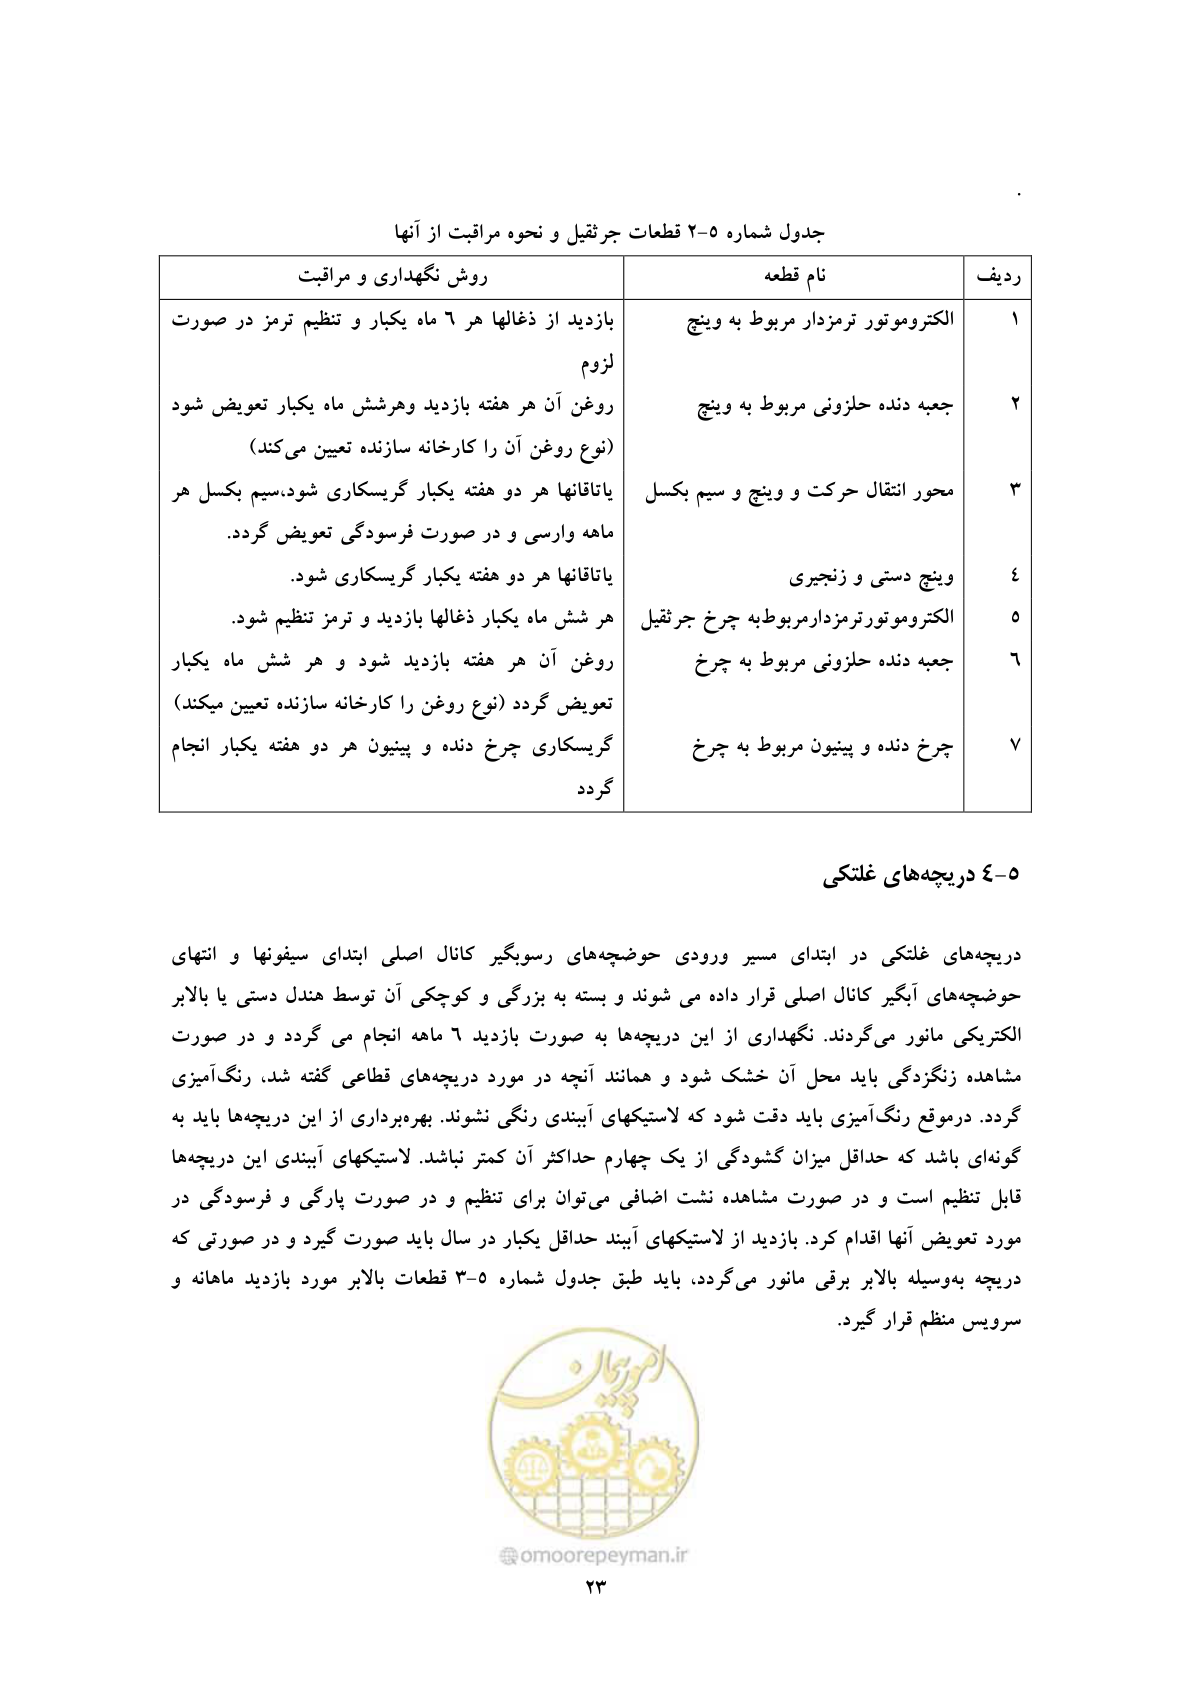 .
جدول شماره ۵-۲ قطعات جرثقیل و نحوه مراقبت از آنها
ردیف نام قطعه روش نگهداری و مراقبت
۱ الکتروموتور ترمزدار مربوط به وینچ بازدید از ذغالها هر ۶ ماه یکبار و تنظیم ترمز در صورت
لزوم
۲ جعبه دنده حلزونی مربوط به وینچ روغن آن هر هفته بازدید وهرشش ماه یکبار تعویض شود
(نوع روغن آن را کارخانه سازنده تعیین می‌کند)
۳ محور انتقال حرکت و وینچ و سیم بکسل یاتاقانها هر دو هفته یکبار گریسکاری شود،سیم بکسل هر
ماهه وارسی و در صورت فرسودگی تعویض گردد.
۴ وینچ دستی و زنجیری یاتاقانها هر دو هفته یکبار گریسکاری شود.
۵ الکتروموتورترمزدارمربوط‌به چرخ جرثقیل هر شش ماه یکبار ذغالها بازدید و ترمز تنظیم شود.
۶ جعبه دنده حلزونی مربوط به چرخ روغن آن هر هفته بازدید شود و هر شش ماه یکبار
تعویض گردد (نوع روغن را کارخانه سازنده تعیین میکند)
۷ چرخ دنده و پینیون مربوط به چرخ گریسکاری چرخ دنده و پینیون هر دو هفته یکبار انجام
گردد
۵-۴ دریچه‌های غلتکی
دریچه‌های غلتکی در ابتدای مسیر ورودی حوضچه‌های رسوبگیر کانال اصلی ابتدای سیفونها و انتهای
حوضچه‌های آبگیر کانال اصلی قرار داده می شوند و بسته به بزرگی و کوچکی آن توسط هندل دستی یا بالابر
الکتریکی مانور می‌گردند. نگهداری از این دریچه‌ها به صورت بازدید ۶ ماهه انجام می گردد و در صورت
مشاهده زنگزدگی باید محل آن خشک شود و همانند آنچه در مورد دریچه‌های قطاعی گفته شد، رنگ‌آمیزی
گردد. درموقع رنگ‌آمیزی باید دقت شود که لاستیکهای آببندی رنگی نشوند. بهره‌برداری از این دریچه‌ها باید به
گونه‌ای باشد که حداقل میزان گشودگی از یک چهارم حداکثر آن کمتر نباشد. لاستیکهای آببندی این دریچه‌ها
قابل تنظیم است و در صورت مشاهده نشت اضافی می‌توان برای تنظیم و در صورت پارگی و فرسودگی در
مورد تعویض آنها اقدام کرد. بازدید از لاستیکهای آببند حداقل یکبار در سال باید صورت گیرد و در صورتی که
دریچه به‌وسیله بالابر برقی مانور می‌گردد، باید طبق جدول شماره ۵-۳ قطعات بالابر مورد بازدید ماهانه و
سرویس منظم قرار گیرد.
امور پیمان
@omoorepeyman.ir
۲۳